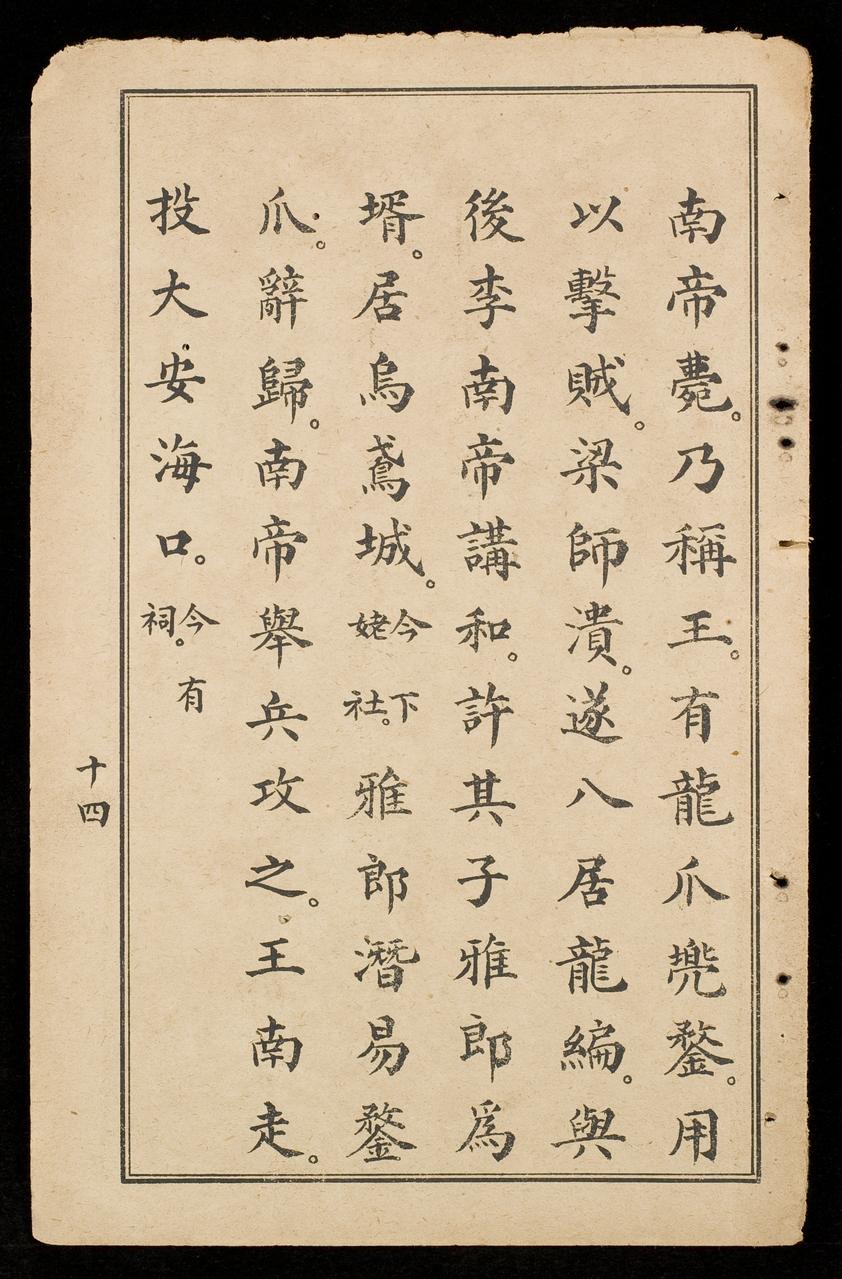 南帝薨。乃稱王。有龍爪兠鍪。用
以擊賊。梁師潰。遂八居龍編。與
後李南帝講和。許其子雅郎爲
壻。居烏鳶城。今下姥社。雅郎潛易鍪
爪。辭歸。南帝舉兵攻之。王南走。
投大安海口。今有祠。
十四